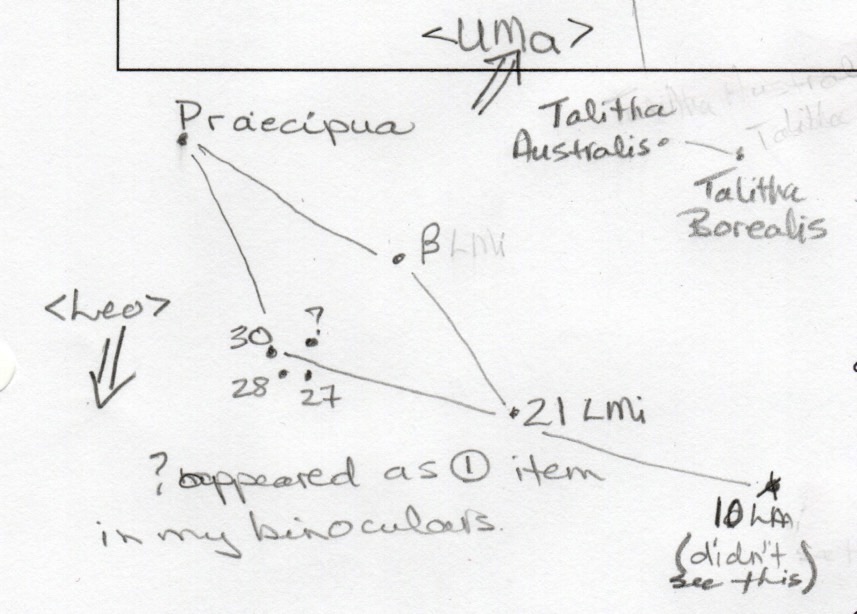 <UMa>
Praecipua
Talitha
Australis
Talitha
Borealis
β LMi
<Leo>
30
?
28
27
21 LMi
? appeared as ① item
in my binoculars.
10 LMi
(didn't
see this)